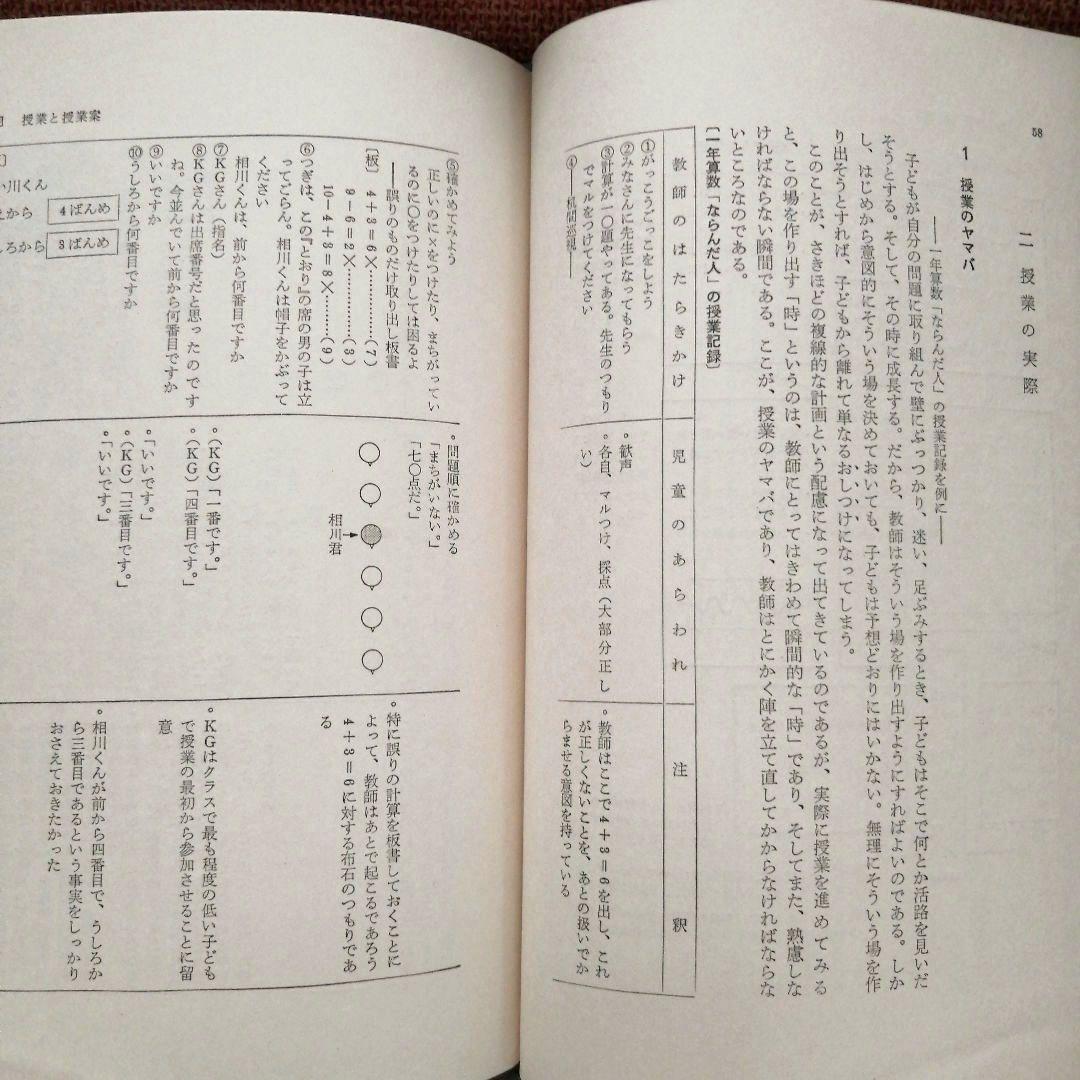 58
二　授業の実際
1　授業のヤマバ
――一年算数「ならんだ人」の授業記録を例に――
子どもが自分の問題に取り組んで壁にぶっつかり、迷い、足ぶみするとき、子どもはそこで何とか活路を見いだ
そうとする。そして、その時に成長する。だから、教師はそういう場を作り出すようにすればよいのである。しか
し、はじめから意図的にそういう場を決めておいても、子どもは予想どおりにはいかない。無理にそういう場を作
り出そうとすれば、子どもから離れて単なるおしつけになってしまう。
このことが、さきほどの複線的な計画という配慮になって出てきているのであるが、実際に授業を進めてみる
と、この場を作り出す「時」というのは、教師にとってはきわめて瞬間的な「時」であり、そしてまた、熟慮しな
ければならない瞬間である。ここが、授業のヤマバであり、教師はとにかく陣を立て直してかからなければならな
いところなのである。
〔一年算数「ならんだ人」の授業記録〕
教師のはたらきかけ
児童のあらわれ
注釈
①がっこうごっこをしよう
②みなさんに先生になってもらう
③計算が一〇題やってある。先生のつもり
でマルをつけてください
④――机間巡視――
。歓声
。各自、マルつけ、採点（大部分正し
い）
。教師はここで4＋3＝6を出し、これ
が正しくないことを、あとの扱いでか
らませる意図を持っている
授業と授業案
⑤確かめてみよう
正しいのに×をつけたり、まちがってい
るのに〇をつけたりしては困るよ
――誤りのものだけ取り出し板書
〔板〕　4＋3＝6×…………(7)
9－6＝2×…………(3)
10－4＋3＝8×…………(9)
⑥つぎは、この『とおり』の席の男の子は立
ってごらん。相川くんは帽子をかぶって
ください
相川くんは、前から何番目ですか
⑦KGさん（指名）
⑧KGさんは出席番号だと思ったのです
ね。今並んでいて前から何番目ですか
⑨いいですか
⑩うしろから何番目ですか
い川くん
えから　4ばんめ
しろから　3ばんめ
。問題順に確かめる
「まちがいない。」
「七〇点だ。」
相川君
。（KG）「一番です。」
。（KG）「四番目です。」
。「いいです。」
。（KG）「三番目です。」
。「いいです。」
。特に誤りの計算を板書しておくことに
よって、教師はあとで起こるであろう
4＋3＝6に対する布石のつもりであ
る
。KGはクラスで最も程度の低い子ども
で授業の最初から参加させることに留
意
。相川くんが前から四番目で、うしろか
ら三番目であるという事実をしっかり
おさえておきたかった